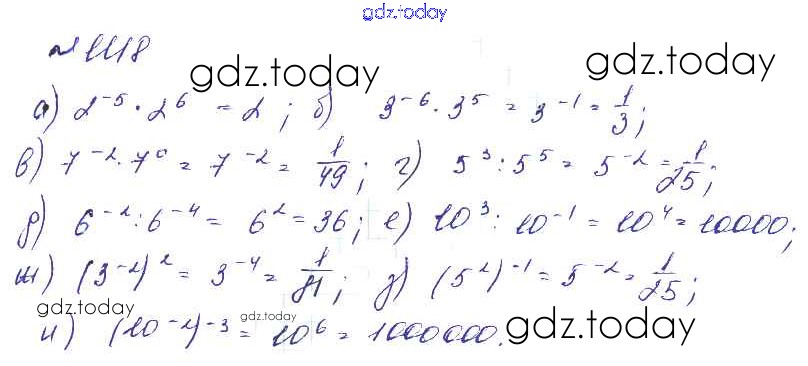 gdz.today
№ 1118
gdz.today gdz.today
а) 2⁻⁵ · 2⁶ = 2 ; б) 3⁻⁶ · 3⁵ = 3⁻¹ = 1/3 ;
в) 7⁻² · 7⁰ = 7⁻² = 1/49 ; г) 5³ : 5⁵ = 5⁻² = 1/25 ;
д) 6⁻² : 6⁻⁴ = 6² = 36 ; е) 10³ : 10⁻¹ = 10⁴ = 10000 ;
ж) (3⁻²)² = 3⁻⁴ = 1/81 ; з) (5²)⁻¹ = 5⁻² = 1/25 ;
gdz.today gdz.today gdz.today
и) (10⁻²)⁻³ = 10⁶ = 1000000.